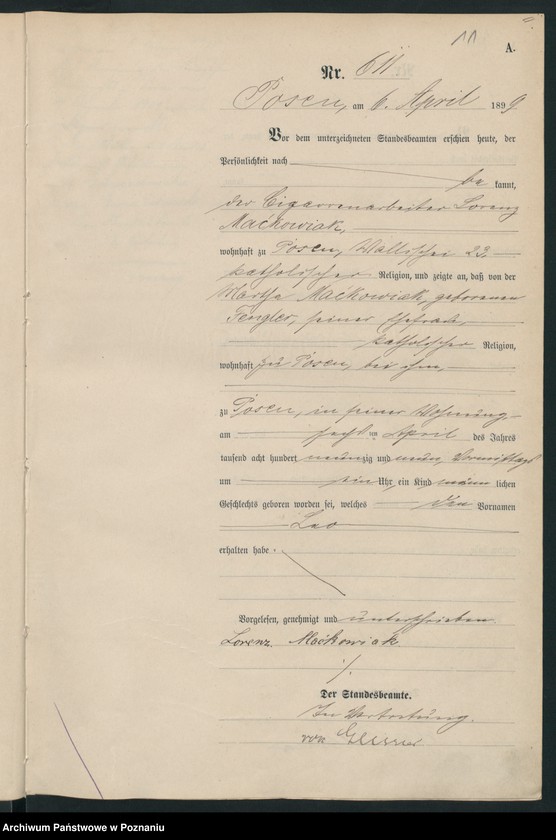 11
A.
Nr. 611
Posen, am 6. April 1899
Vor dem unterzeichneten Standesbeamten erschien heute, der
Persönlichkeit nach
bekannt,
der Cigarrenarbeiter Lorenz
Maćkowiak,
wohnhaft zu Posen, Wallischei 23,
katholischer Religion, und zeigte an, daß von der
Martha Maćkowiak, geborenen
Pengler, seiner Ehefrau,
katholischer Religion,
wohnhaft zu Posen, bei ihm,
zu Posen, in seiner Wohnung
am sechsten April des Jahres
tausend acht hundert neunzig und neun, Vormittags
um ein Uhr, ein Kind männlichen
Geschlechts geboren worden sei, welches den Vornamen
Leo
erhalten habe.
Vorgelesen, genehmigt und unterschrieben.
Lorenz Maćkowiak
Der Standesbeamte.
In Vertretung.
von
Archiwum Państwowe w Poznaniu